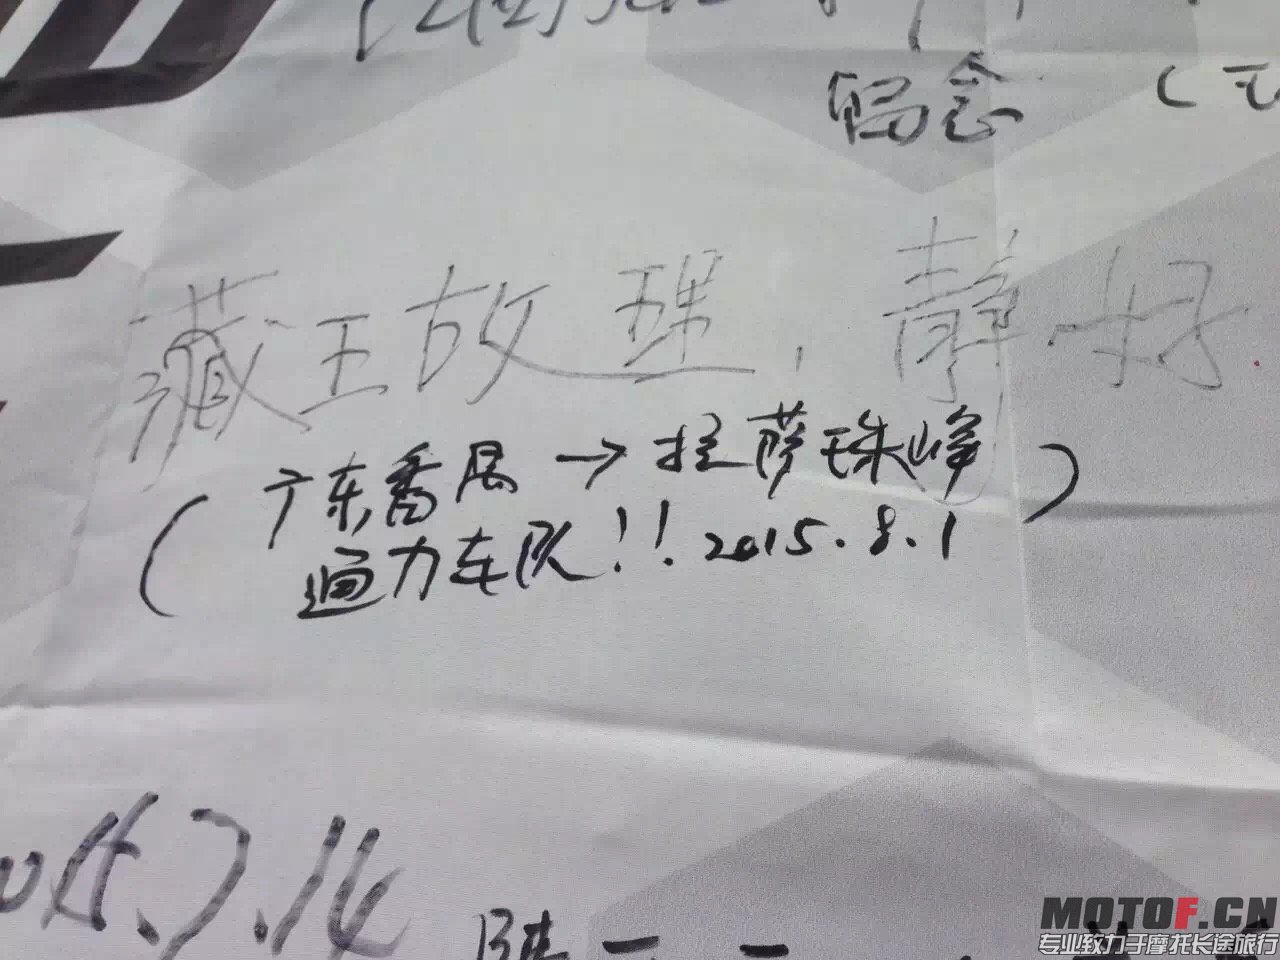 念
藏王故理，静好
（广东番禺→拉萨珠峰
通力车队！！2015.8.1）
015.7.14
MOTOF.CN
专业致力于摩托长途旅行